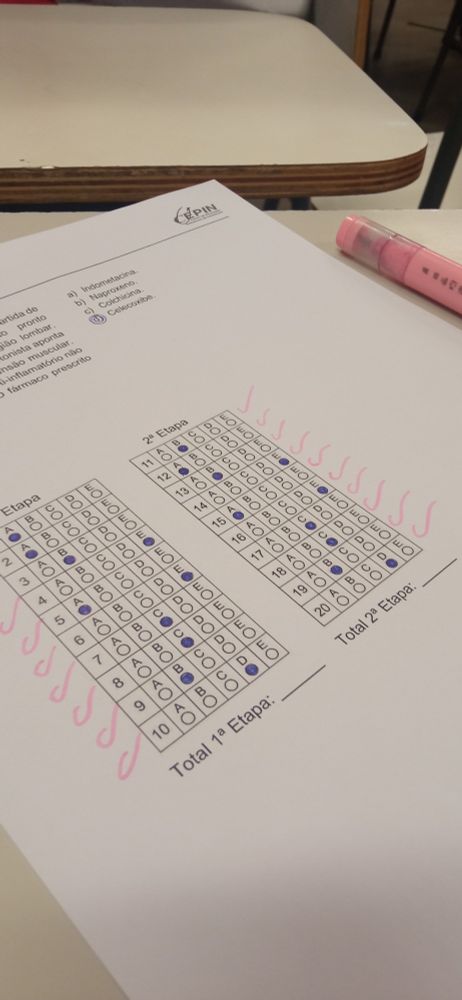 CEPIN
artida de
o pronto
gião lombar.
tonista aponta
nsão muscular.
ti-inflamatório não
o fármaco prescrito
a) Indometacina.
b) Naproxeno.
c) Colchicina.
d) Celecoxibe.
Etapa
A B C D E
2 A B C D E
3 A B C D E
4 A B C D E
5 A B C D E
6 A B C D E
7 A B C D E
8 A B C D E
9 A B C D E
10 A B C D E
Total 1ª Etapa:
2ª Etapa
11 A B C D E
12 A B C D E
13 A B C D E
14 A B C D E
15 A B C D E
16 A B C D E
17 A B C D E
18 A B C D E
19 A B C D E
20 A B C D E
Total 2ª Etapa: